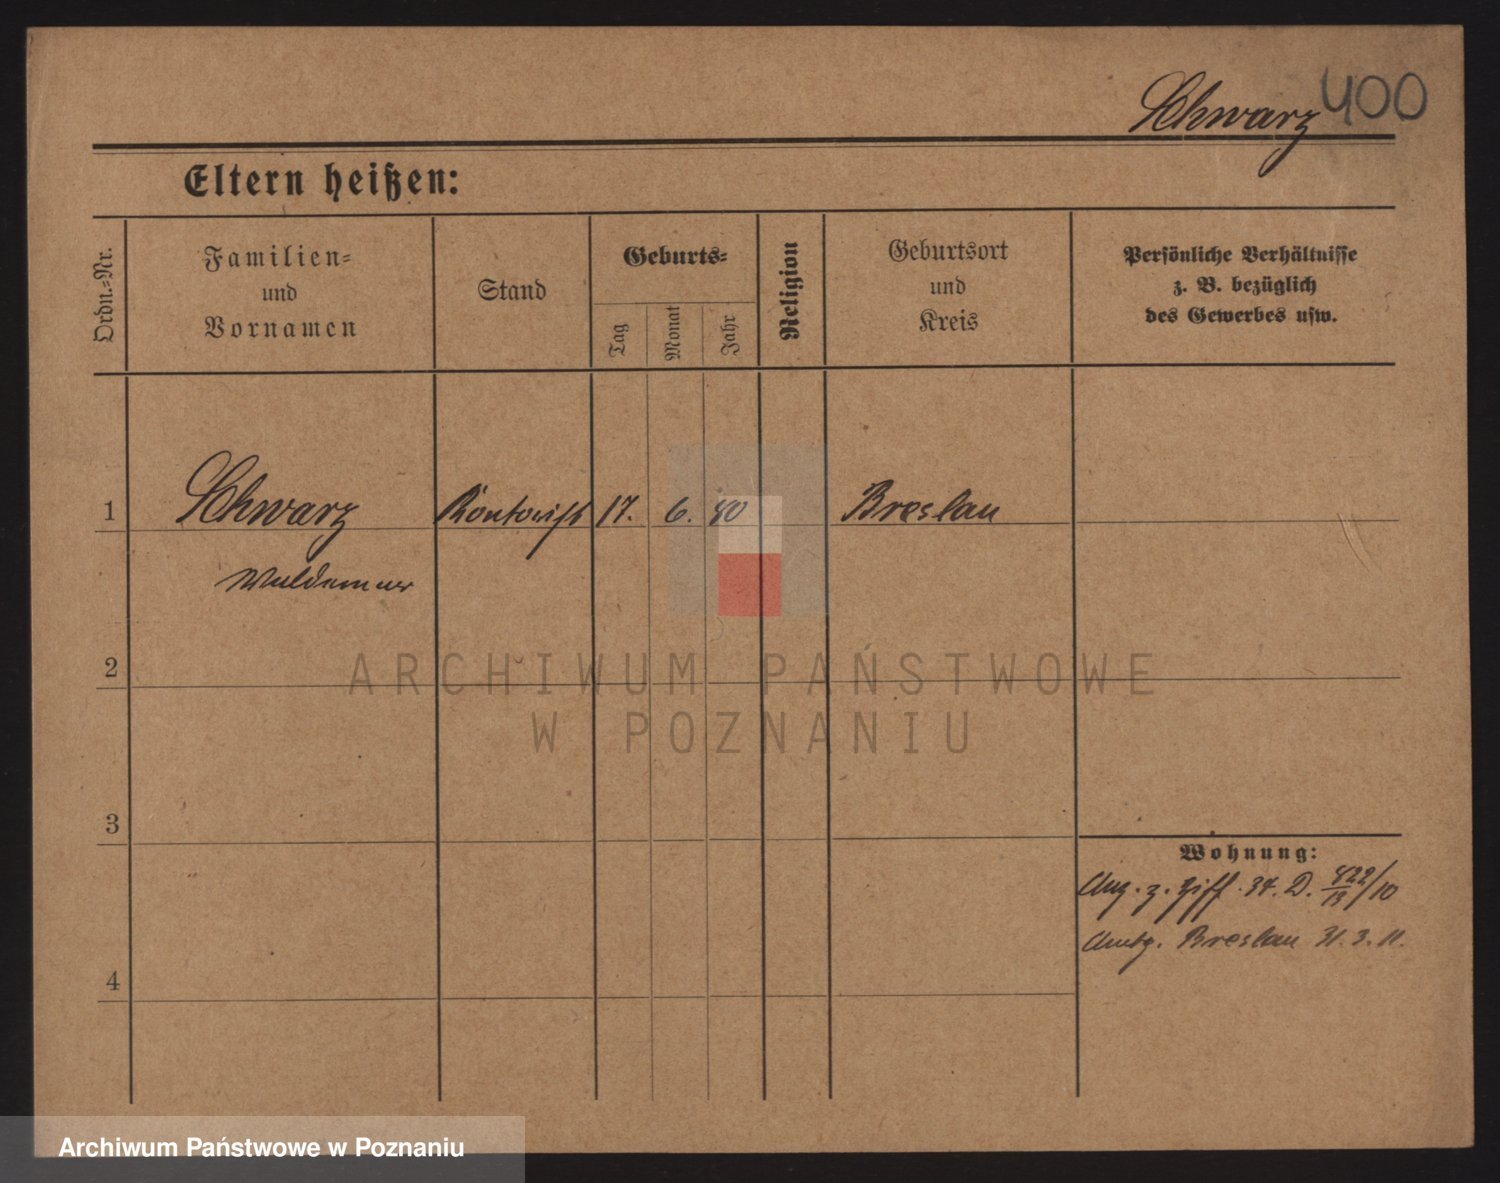 Schwarz 400
Eltern heißen:
Ordn.=Nr.
Familien=
und
Vornamen
Stand
Geburts=
Tag
Monat
Jahr
Religion
Geburtsort
und
Kreis
Persönliche Verhältnisse
z. B. bezüglich
des Gewerbes usw.
1 Schwarz Kontorist 17. 6. 80 Breslau
Waldemar
2
ARCHIWUM PAŃSTWOWE
W POZNANIU
3
Wohnung:
Ang. z. Ziff. 37. D. /10
Breslau 31. 3. 11.
4
Archiwum Państwowe w Poznaniu